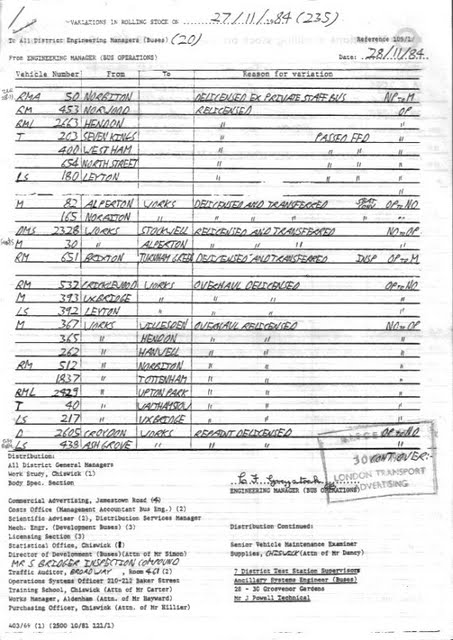 VARIATIONS IN ROLLING STOCK ON 27/11/1984 (235)
To All District Engineering Managers (Buses) (20) Reference 109/1
From ENGINEERING MANAGER (BUS OPERATIONS) Date: 28/11/84
Vehicle Number From To Reason for variation
RMA 50 NORBITON DELICENSED EX PRIVATE STAFF BUS NP TO M
RM 453 NORWOOD RELICENSED OP
RML 2663 HENDON " "
T 263 SEVEN KINGS " PASSED FFD "
400 WEST HAM " " "
654 NORTH STREET " " "
LS 180 LEYTON " "
M 82 ALPERTON WORKS DELICENSED AND TRANSFERRED OP TO NO
165 NORBITON " " " " " "
DMS 2328 WORKS STOCKWELL RELICENSED AND TRANSFERRED NO TO OP
M 30 " ALPERTON " " " "
RM 651 BRIXTON TURNHAM GREEN DELICENSED AND TRANSFERRED INSP OP TO M
RM 532 CRICKLEWOOD WORKS OVERHAUL DELICENSED OP TO NO
M 393 UXBRIDGE " " " "
LS 392 LEYTON " " " "
M 367 WORKS WILLESDEN OVERHAUL RELICENSED NO TO OP
365 " HENDON " " "
262 " HANWELL " " "
RM 512 " NORBITON " " "
1837 " TOTTENHAM " " "
RML 2429 " UPTON PARK " " "
T 40 " WALTHAMSTOW " " "
LS 217 " UXBRIDGE " " "
D 2605 CROYDON WORKS REPAINT DELICENSED OP TO NO
LS 438 ASH GROVE " " " "
CONT OVER:-
LONDON TRANSPORT
ADVERTISING
Distribution:
All District General Managers
Work Study, Chiswick (1)
Body Spec. Section
ENGINEERING MANAGER (BUS OPERATIONS)
Commercial Advertising, Jamestown Road (4)
Costs Office (Management Accountant Bus Eng.) (2)
Scientific Adviser (2), Distribution Services Manager
Mech. Engr. (Development Buses) (3) Distribution Continued:
Licensing Section (3)
Statistical Office, Chiswick Senior Vehicle Maintenance Examiner
Director of Development (Buses)(Attn of Mr Simon) Supplies, CHISWICK (Attn of Mr Dancy)
MR S BRIDGER INSPECTION COMPOUND
Traffic Auditor, BROADWAY, Room 7 District Test Station Supervisors
Operations Systems Officer 210-212 Baker Street Ancillary Systems Engineer (Buses)
Training School, Chiswick (Attn of Mr Carter) 28 - 30 Grosvenor Gardens
Works Manager, Aldenham (Attn. of Mr Hayward) Mr J Powell Technical
Purchasing Officer, Chiswick (Attn. of Mr Hillier)
403/69 (1) (2500 10/81 121/1)